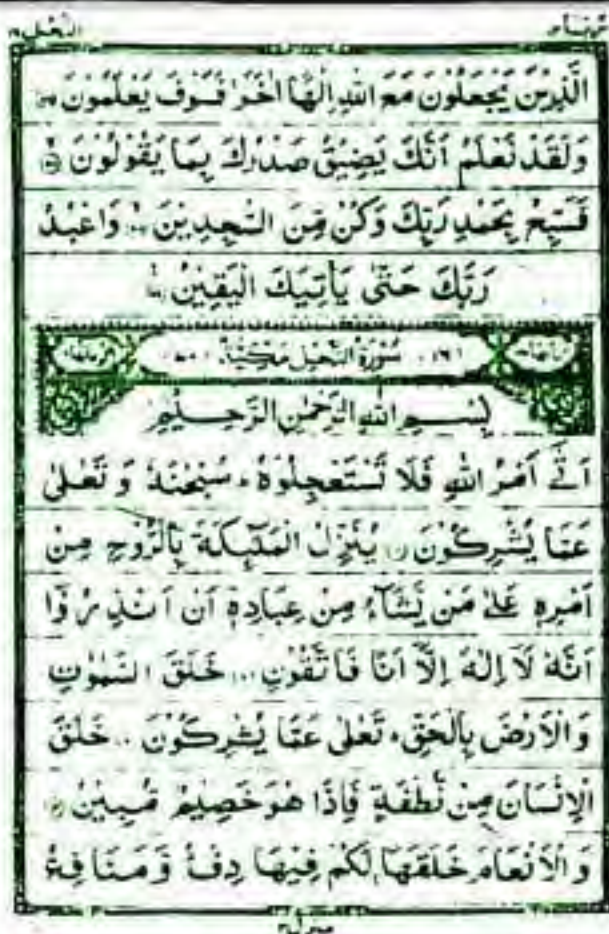 النحل ١٦
الَّذِيْنَ يَجْعَلُوْنَ مَعَ اللّٰهِ اِلٰهًا اٰخَرَ فَسَوْفَ يَعْلَمُوْنَ
وَلَقَدْ نَعْلَمُ اَنَّكَ يَضِيْقُ صَدْرُكَ بِمَا يَقُوْلُوْنَ
فَسَبِّحْ بِحَمْدِ رَبِّكَ وَكُنْ مِّنَ السّٰجِدِيْنَ وَاعْبُدْ
رَبَّكَ حَتّٰى يَاْتِيَكَ الْيَقِيْنُ
(١٦) سُوْرَةُ النَّحْلِ مَكِّيَّةٌ (٧٠)
بِسْمِ اللّٰهِ الرَّحْمٰنِ الرَّحِيْمِ
اَتٰٓى اَمْرُ اللّٰهِ فَلَا تَسْتَعْجِلُوْهُ ؕ سُبْحٰنَهٗ وَ تَعٰلٰى
عَمَّا يُشْرِكُوْنَ يُنَزِّلُ الْمَلٰٓئِكَةَ بِالرُّوْحِ مِنْ
اَمْرِهٖ عَلٰى مَنْ يَّشَآءُ مِنْ عِبَادِهٖٓ اَنْ اَنْذِرُوْٓا
اَنَّهٗ لَاۤ اِلٰهَ اِلَّاۤ اَنَا فَاتَّقُوْنِ خَلَقَ السَّمٰوٰتِ
وَالْاَرْضَ بِالْحَقِّ ؕ تَعٰلٰى عَمَّا يُشْرِكُوْنَ خَلَقَ
الْاِنْسَانَ مِنْ نُّطْفَةٍ فَاِذَا هُوَ خَصِيْمٌ مُّبِيْنٌ
وَالْاَنْعَامَ خَلَقَهَا لَكُمْ فِيْهَا دِفْءٌ وَّمَنَافِعُ